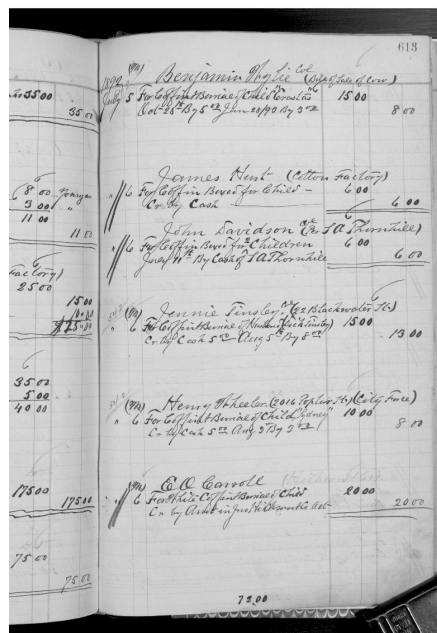 35 00
35 00
6 8 00 Younger
3 00 "
11 00
11 00
Factory)
25 00
15 00
10 00
$25 00
35 00
5 00
40 00
175 00
175 00
75 00
75 00
613
1892 (Pd) Benjamin Wylie Col (Bill of Sale of Cow)
July 5 For Coffin & Burial of Child 15 00
Oct 25th By 5 00 Jan 20/90 By 3 00 8 00
James Hunt (Cotton Factory)
" 6 For Coffin Boxed for Child - 6 00
Cr by Cash 6 00
John Davidson Col (Per S A Thornhill)
" 6 For Coffin Boxed for Children 6 00
July 11th By Cash of S A Thornhill 6 00
(Pd) Jennie Tinsley Col (22 Blackwater St)
" 6 For Coffin & Burial of Husband (Dick Tinsley) 15 00
Cr by Cash 5 00 Aug 5th By 8 00 13 00
(Pd) Henry Wheeler (2016 Taylor St) (City Force)
" 6 For Coffin & Burial of Child "Sydney" 10 00
Cr by Cash 5 00 Aug 3 By 3 00 8 00
(Pd) E O Carroll
" 6 For White Coffin & Burial of Child 20 00
Cr by Amt in 20 00
72.00